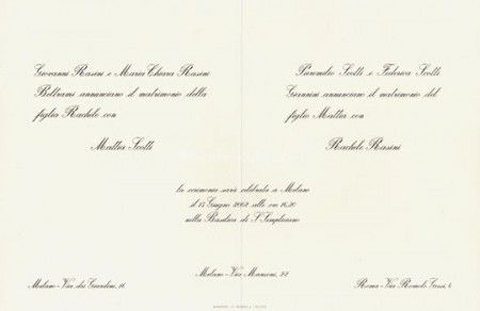 Giovanni Rasini e Maria Chiara Rasini
Beltrami annunciano il matrimonio della
figlia Rachele con
Mattia Scotti
Pieremilio Scotti e Federica Scotti
Giannini annunciano il matrimonio del
figlio Mattia con
Rachele Rasini
la cerimonia sarà celebrata a Milano
il 15 Giugno 2002 alle ore 16,30
nella Basilica di S. Simpliciano
Milano - Via dei Giardini, 16
Milano - Via Manzoni, 22
Roma - Via Romolo Gessi, 6